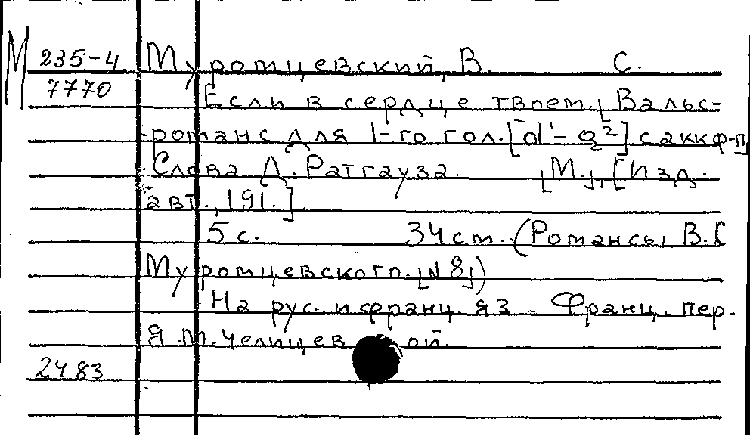 М 235-4 Муромцевский, В. С.
7770 Если в сердце твоем. [Вальс-
романс для 1-го гол. [d¹-g²] с акк ф-п
Слова Д. Ратгауза [М.], [Изд.
авт., 191.]
5 с. 34 см. (Романсы В.С
Муромцевского. [№8])
На рус. и франц. яз. Франц. пер.
Я.М. Челищевой.
2483